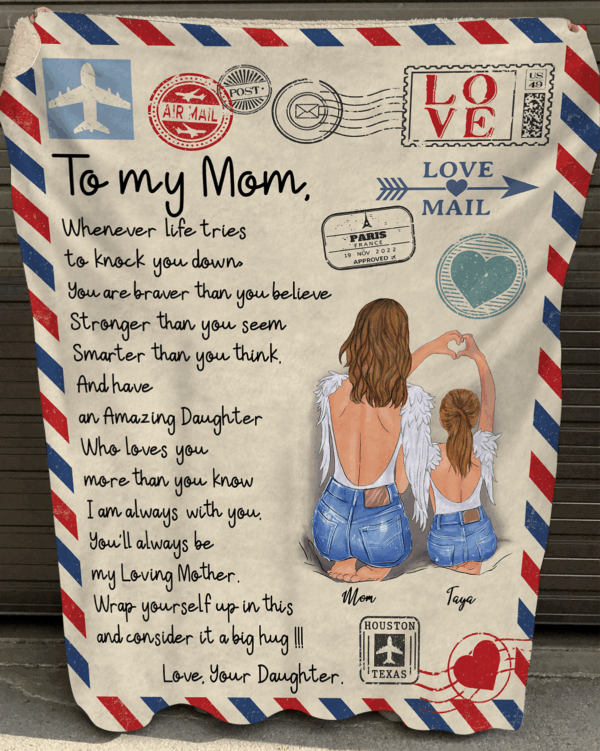 AIR MAIL
POST
LOVE
US
49
LOVE
MAIL
PARIS
FRANCE
19 NOV 2022
APPROVED
To my Mom,
Whenever life tries
to knock you down
You are braver than you believe
Stronger than you seem
Smarter than you think.
And have
an Amazing Daughter
Who loves you
more than you know
I am always with you.
You'll always be
my Loving Mother.
Wrap yourself up in this
and consider it a big hug !!!
Love, Your Daughter.
Mom
Taya
HOUSTON
TEXAS